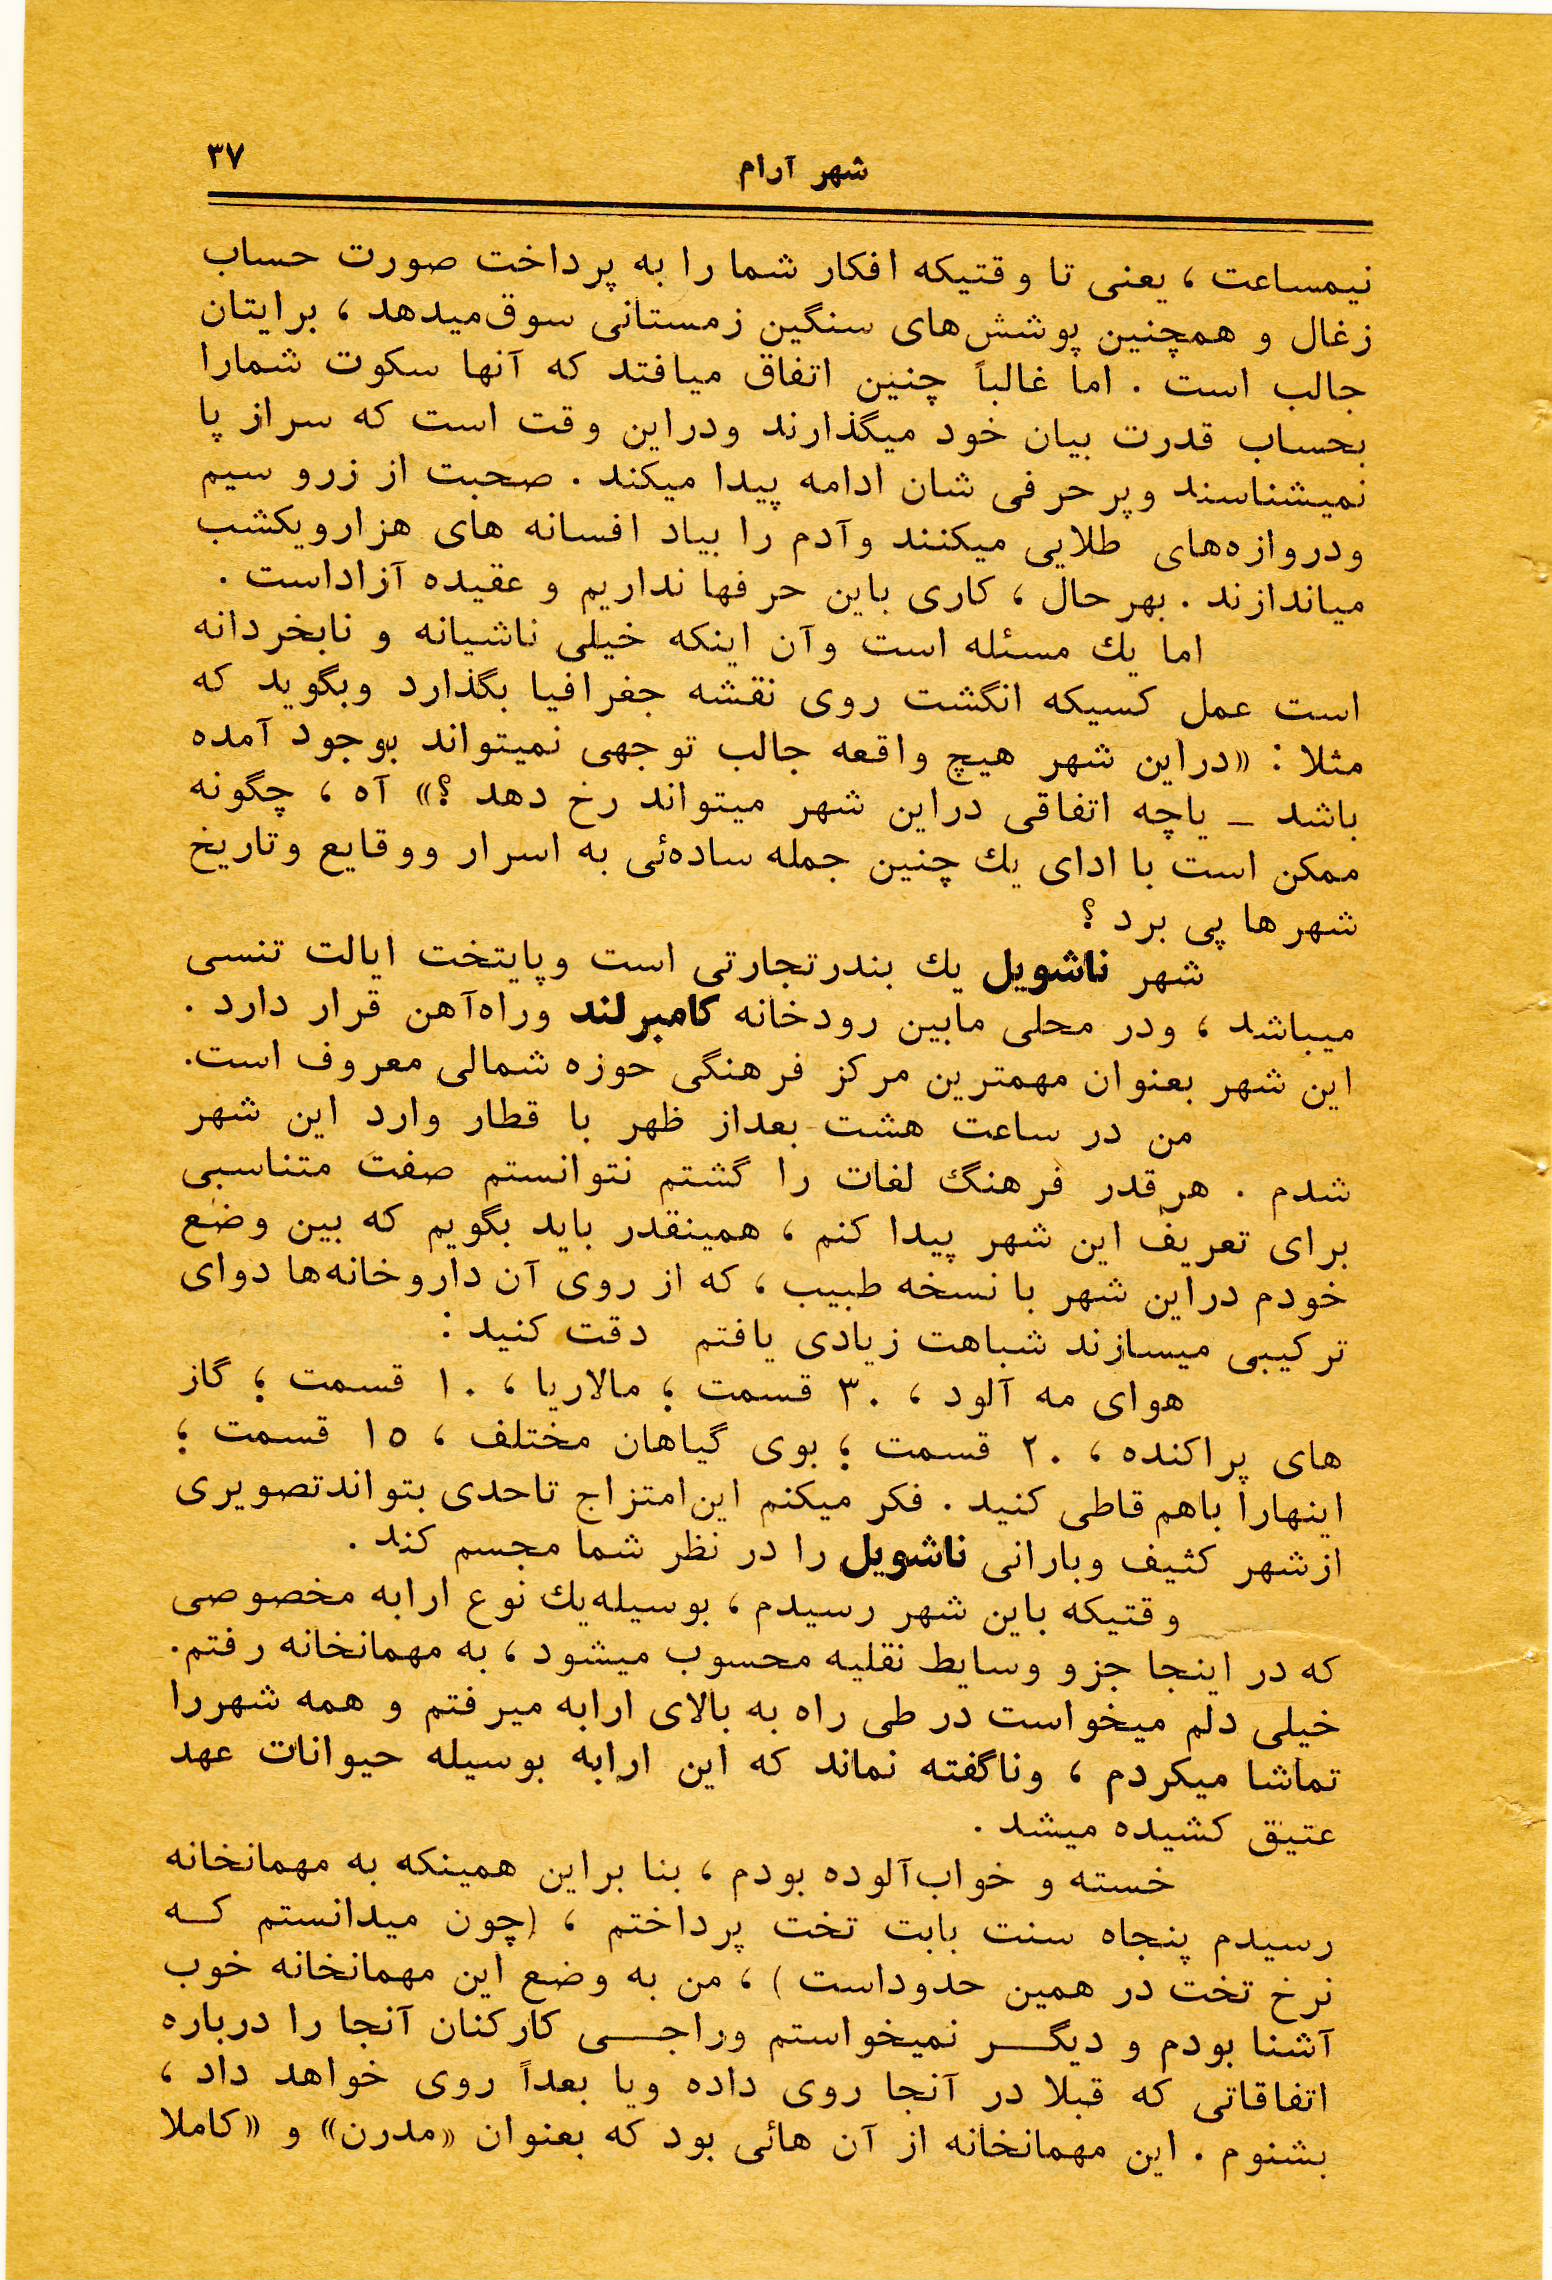 شهر آرام
۳۷
نیمساعت ، یعنی تا وقتیکه افکار شما را به پرداخت صورت حساب
زغال و همچنین پوشش‌های سنگین زمستانی سوق‌میدهد ، برایتان
جالب است . اما غالباً چنین اتفاق میافتد که آنها سکوت شمارا
بحساب قدرت بیان خود میگذارند ودراین وقت است که سراز پا
نمیشناسند وپرحرفی شان ادامه پیدا میکند . صحبت از زرو سیم
ودروازه‌های طلایی میکنند وآدم را بیاد افسانه های هزارویکشب
میاندازند . بهرحال ، کاری باین حرفها نداریم و عقیده آزاداست .
اما یك مسئله است وآن اینکه خیلی ناشیانه و نابخردانه
است عمل کسیکه انگشت روی نقشه جغرافیا بگذارد وبگوید که
مثلا : «دراین شهر هیچ واقعه جالب توجهی نمیتواند بوجود آمده
باشد ـ یاچه اتفاقی دراین شهر میتواند رخ دهد ؟» آه ، چگونه
ممکن است با ادای یك چنین جمله ساده‌ئی به اسرار ووقایع وتاریخ
شهرها پی برد ؟
شهر ناشویل یك بندرتجارتی است وپایتخت ایالت تنسی
میباشد ، ودر محلی مابین رودخانه کامبرلند وراه‌آهن قرار دارد .
این شهر بعنوان مهمترین مرکز فرهنگی حوزه شمالی معروف است.
من در ساعت هشت بعداز ظهر با قطار وارد این شهر
شدم . هرقدر فرهنگ لغات را گشتم نتوانستم صفت متناسبی
برای تعریف این شهر پیدا کنم ، همینقدر باید بگویم که بین وضع
خودم دراین شهر با نسخه طبیب ، که از روی آن داروخانه‌ها دوای
ترکیبی میسازند شباهت زیادی یافتم دقت کنید :
هوای مه آلود ، ۳۰ قسمت ؛ مالاریا ، ۱۰ قسمت ؛ گاز
های پراکنده ، ۲۰ قسمت ؛ بوی گیاهان مختلف ، ۱۵ قسمت ؛
اینهارا باهم قاطی کنید . فکر میکنم این‌امتزاج تاحدی بتواندتصویری
ازشهر کثیف وبارانی ناشویل را در نظر شما مجسم کند .
وقتیکه باین شهر رسیدم ، بوسیله‌یك نوع ارابه مخصوصی
که در اینجا جزو وسایط نقلیه محسوب میشود ، به مهمانخانه رفتم.
خیلی دلم میخواست در طی راه به بالای ارابه میرفتم و همه شهررا
تماشا میکردم ، وناگفته نماند که این ارابه بوسیله حیوانات عهد
عتیق کشیده میشد .
خسته و خواب‌آلوده بودم ، بنا براین همینکه به مهمانخانه
رسیدم پنجاه سنت بابت تخت پرداختم ، (چون میدانستم کـه
نرخ تخت در همین حدوداست ) ، من به وضع این مهمانخانه خوب
آشنا بودم و دیگـــر نمیخواستم وراجـــی کارکنان آنجا را درباره
اتفاقاتی که قبلا در آنجا روی داده ویا بعداً روی خواهد داد ،
بشنوم . این مهمانخانه از آن هائی بود که بعنوان «مدرن» و «کاملا